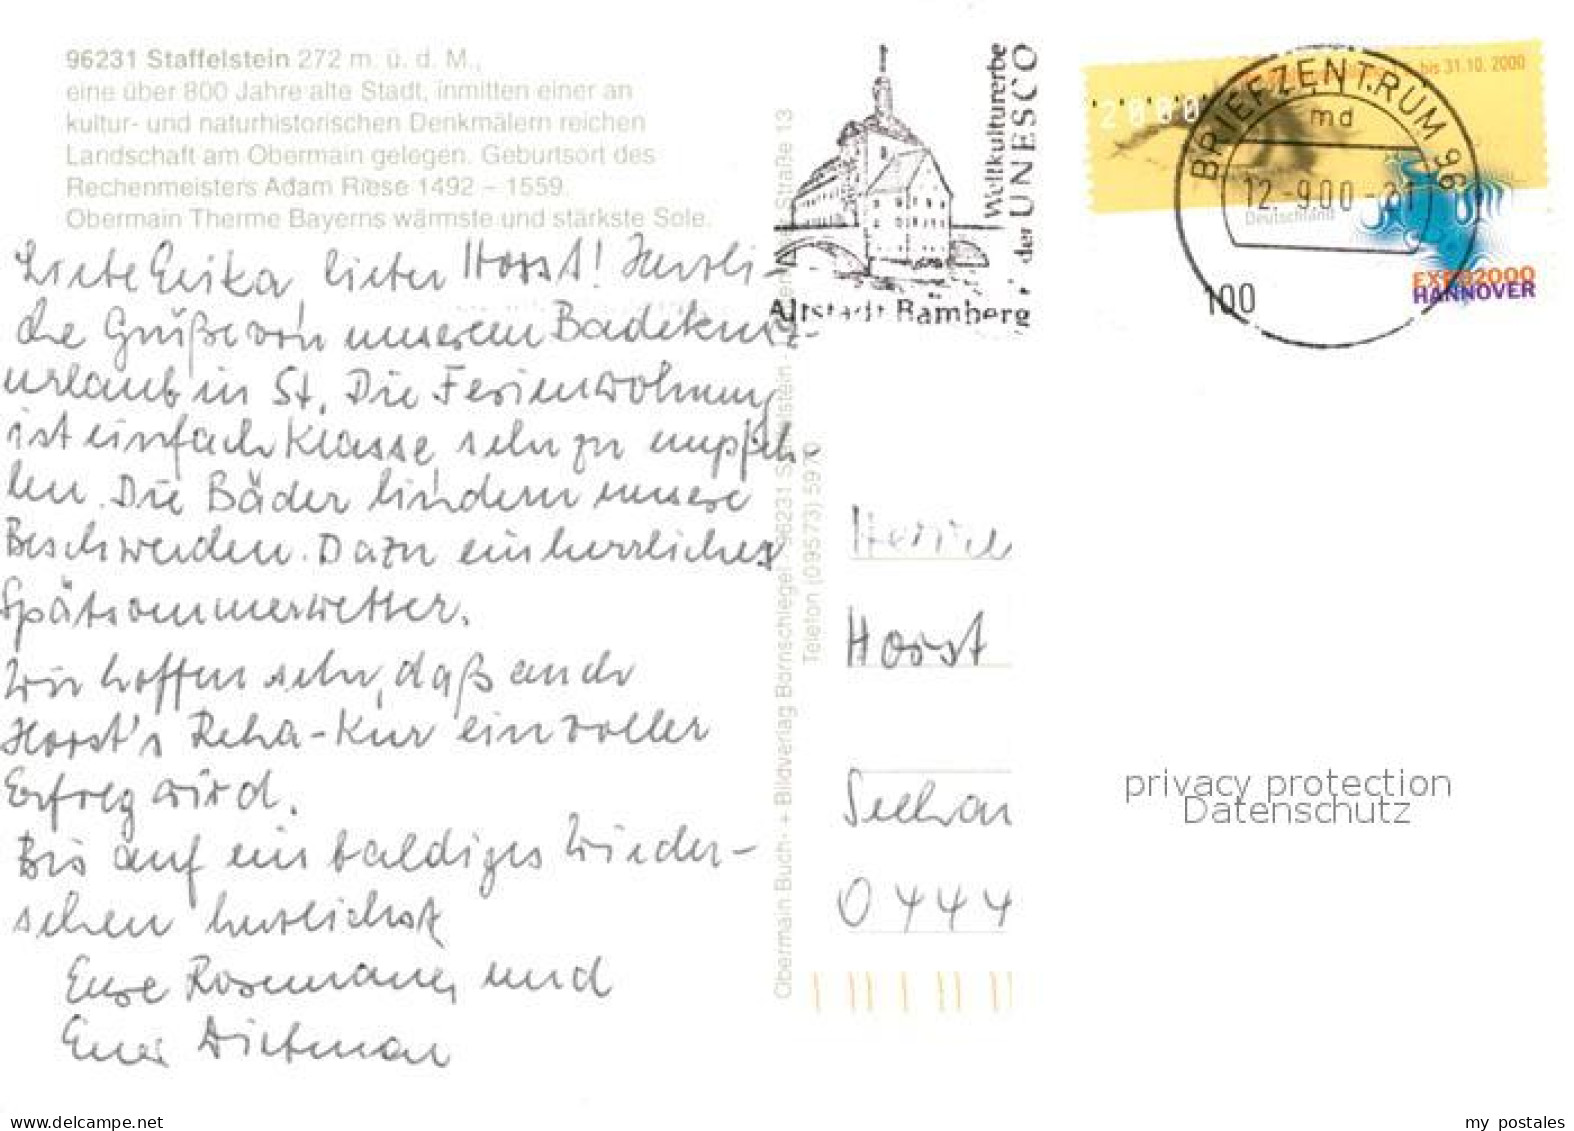 96231 Staffelstein 272 m. ü. d. M.,
eine über 800 Jahre alte Stadt, inmitten einer an
kultur- und naturhistorischen Denkmälern reichen
Landschaft am Obermain gelegen. Geburtsort des
Rechenmeisters Adam Riese 1492 – 1559.
Obermain Therme Bayerns wärmste und stärkste Sole.
Liebe Erika, lieber Horst! Herzli-
che Grüße von unserem Badekur-
urlaub in St. Die Ferienwohnung
ist einfach Klasse, sehr zu empfeh-
len. Die Bäder lindern unsere
Beschwerden. Dazu ein herrliches
Spätsommerwetter.
Wir hoffen sehr, daß auch
Horst's Reha-Kur ein voller
Erfolg wird.
Bis auf ein baldiges Wieder-
sehen herzlichst
Eure Rosemarie und
Euer Dietmar
Obermain Buch- + Bildverlag Bornschlegel - 96231 Staffelstein - Straße 13
Telefon (09573) 597
Altstadt Bamberg
Weltkulturerbe
der UNESCO
bis 31.10. 2000
2000
Deutschland
EXPO2000
HANNOVER
BRIEFZENTRUM 96
md
12.-9.00-21
100
Horst
0444
privacy protection
Datenschutz
www.delcampe.net
my postales